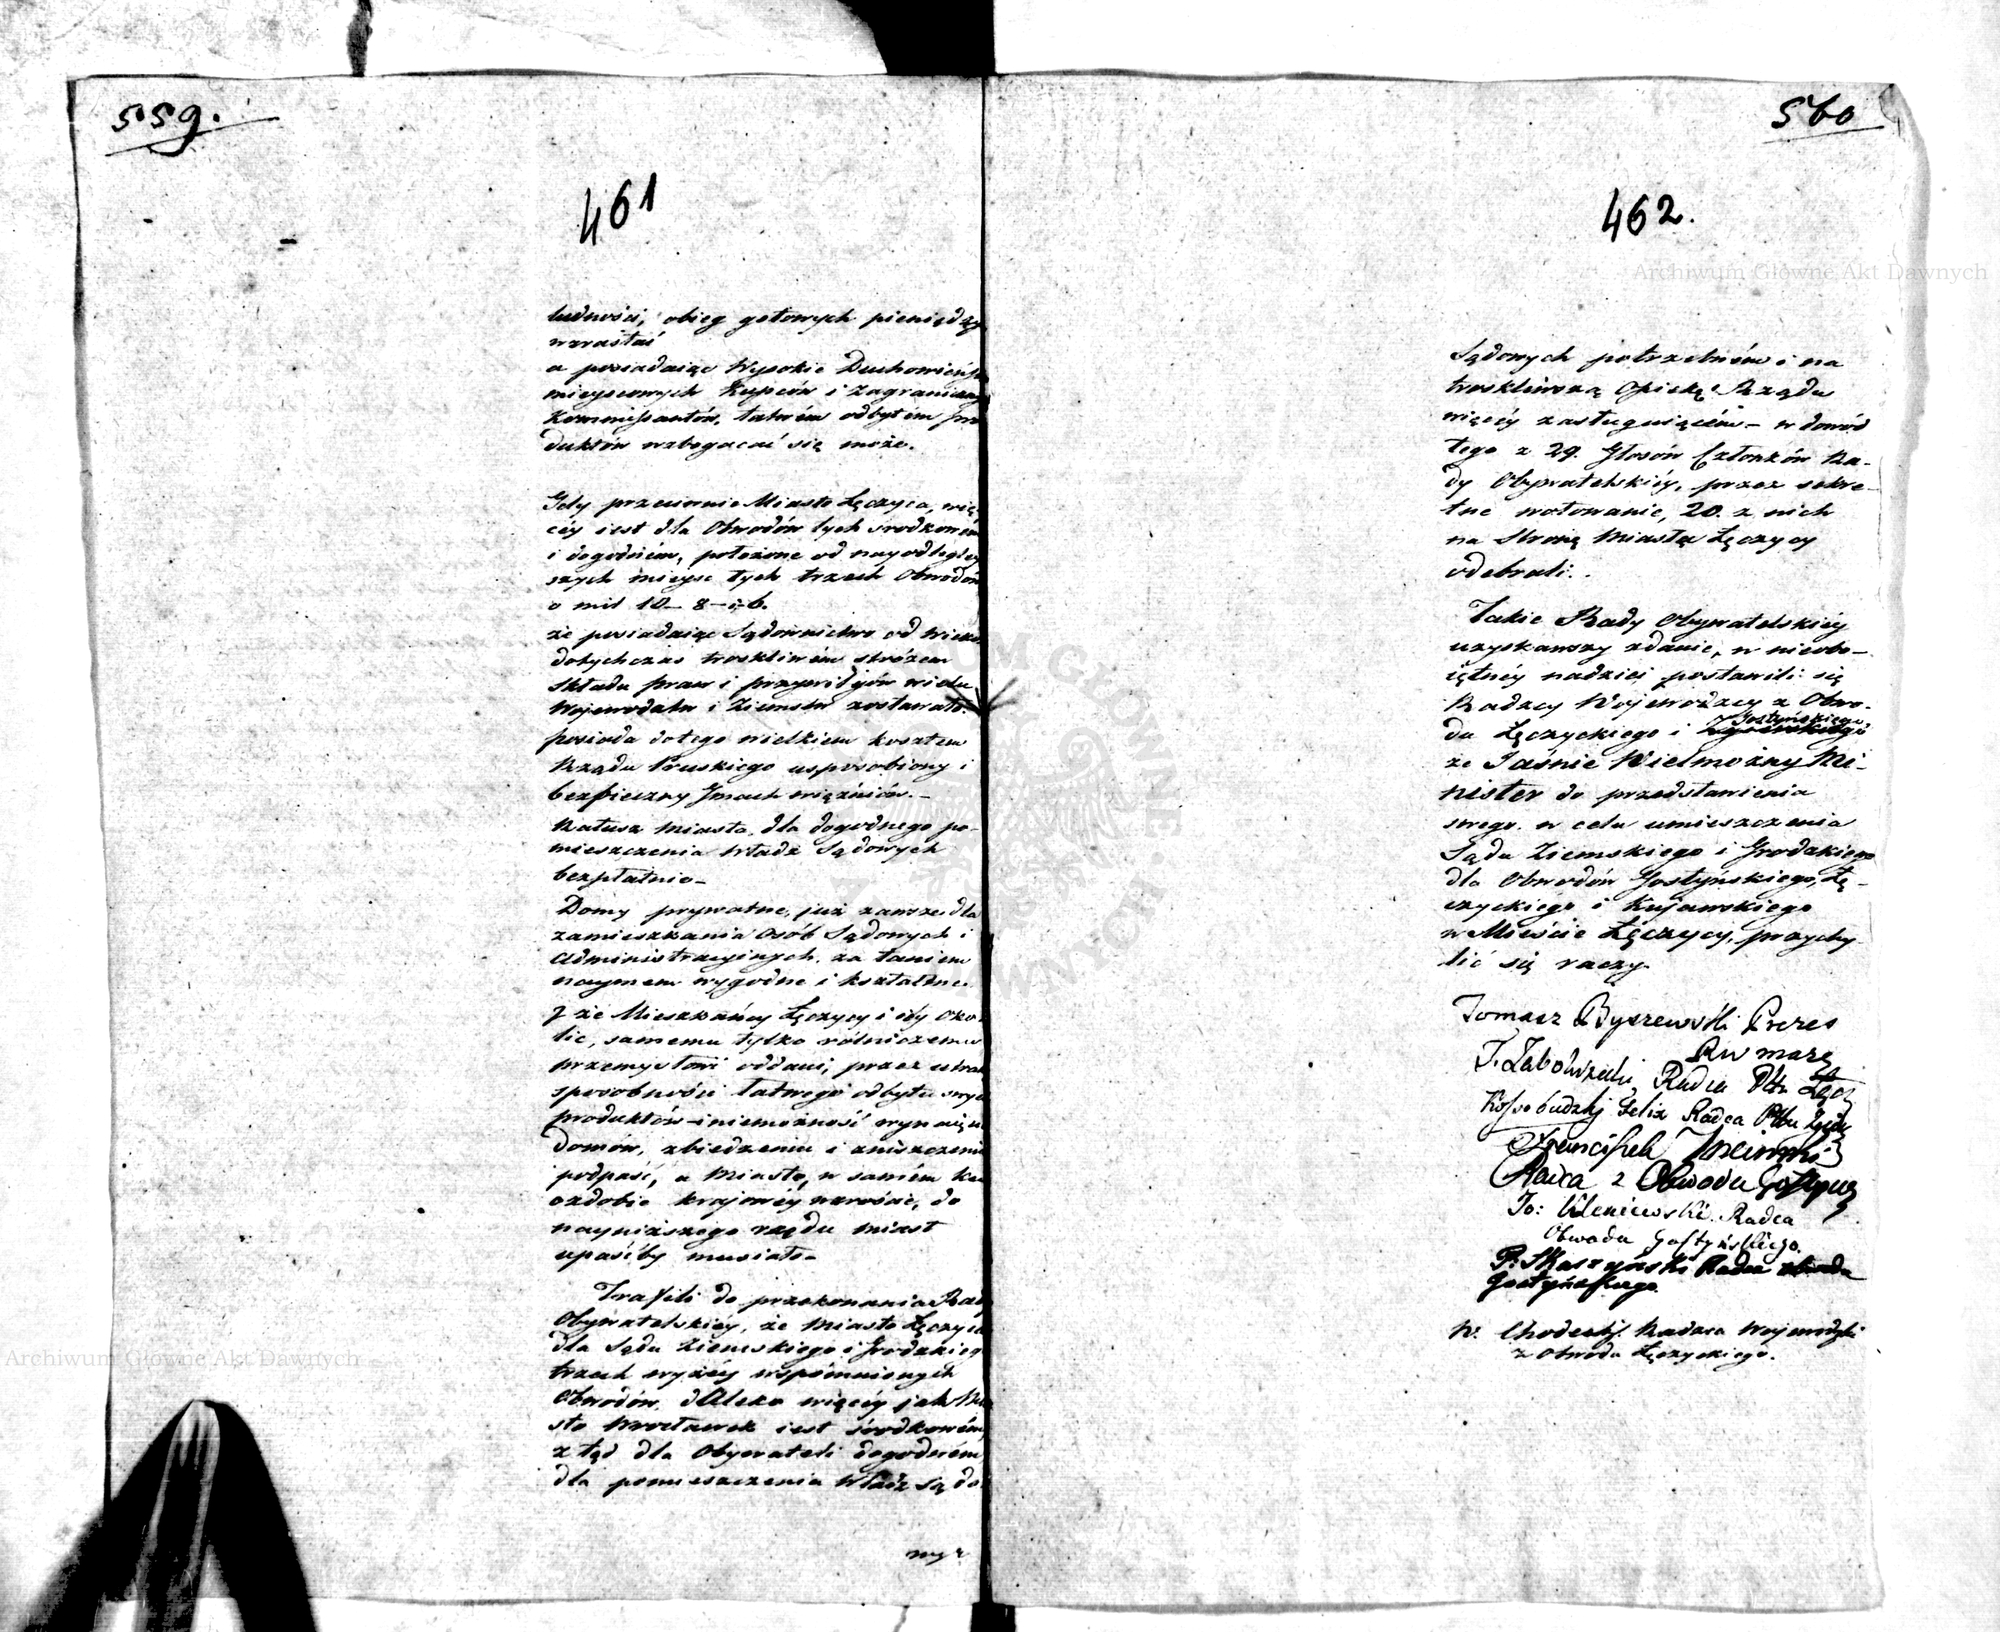 559.
461
ludności, obieg gotowych pieniędzy
wzrastać
a posiadaiąc Wysokie Duchowieńs
mieyscowych Kupców i zagraniczny
Kommissantów, łatwém odbytém pro
duktów wzbogacać się może.
Gdy przeciwnie Miasto Łęczyca, wię
céy iest dla Obwodów tych srodkowém
i dogodném, położone od nayodlegley
szych mieysc tych trzech Obwodów
o mil 10 – 8 – i 6.
że posiadaiąc Sądownictwo od wieków
dotychczas troskliwém stróżem
składu praw i przywilejów wielu
Województw i Ziemstw zostawało.
posiada do tego wielkiem kosztem
Rządu Pruskiego usposobiony i
bezpieczny Gmach więźniów. –
Ratusz Miasta, dla dogodnego po-
mieszczenia Władz Sądowych
bezpłatnie –
Domy prywatne, już zawsze dla
zamieszkania osób Sądowych i
Administracyinych, za taniem
naymem wygodne i kształtne.
I że Mieszkańcy Łęczycy i iéy oko
lic, samemu tylko rólniczemu
przemysłowi oddani, przez utratę
sposobności łatwego odbytu swych
produktów – i niemożność wynaięcia
domów, zbiedzeniu i zniszczeniu
podpaść, a Miasto, w samém ku
ozdobie krajowéy wzroście, do
nayniższego rzędu miast
upaśćby musiało –
Trafili do przekonania Rady
Obywatelskiéy, że Miasto Łęczyca
dla Sądu Ziemskiego i Grodzkieg
trzech wyżéy wspomnionych
Obwodów, daleko więcéy jak Mia
sto Włocławek iest środkowém,
z tąd dla Obywateli dogodném,
dla pomieszczenia Władz Są do
wyz
560
462.
Sądowych potrzebném i na
troskliwszą Opiekę Rządu
więcéy zasługuiącém – w dowód
tego z 29. Głosów Członków Ra-
dy Obywatelskiéy, przez sekre-
tne wotowanie, 20. z nich
na stronę Miasta Łęczycy
odebrali.
Takie Rady Obywatelskiéy
uzyskawszy zdanie, w nieobo-
iętnéy nadziei postawili się
Radzcy Wojewodzcy z Obwo-
du Łęczyckiego i Gostyńskiego,
że Jaśnie Wielmożny Mi-
nister do przedstawienia
swego w celu umieszczenia
Sądu Ziemskiego i Grodzkiego
dla Obwodów Gostyńskiego, Łę-
czyckiego i Kujawskiego
w Mieście Łęczycy, przychy-
lić się raczy.
Tomasz Byszewski Prezes
Radca Pttu
Felix Radca Pttu
Franciszek
Radca z Obwodu Gostyns
Radca
Obwodu Gostyńskiego.
P. Skarzyński Radca
Gostyńskiego.
W. Chodecki. Radzca Wojewódzki
z Obwodu Łęczyckiego.
Archiwum Główne Akt Dawnych
Archiwum Główne Akt Dawnych